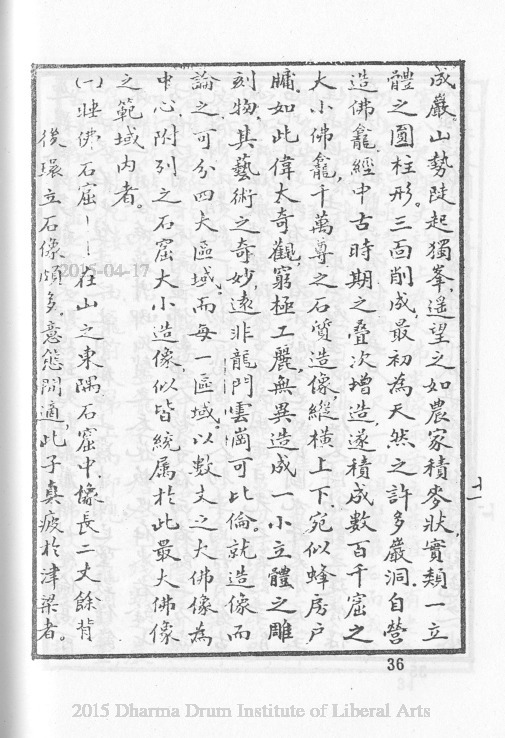 成巖山勢陡起獨峯,遥望之如農家積麥狀,實類一立
體之圓柱形。三面削成,最初為天然之許多巖洞,自營
造佛龕經中古時期之叠次增造,遂積成數百千窟之
大小佛龕,千萬尊之石質造像,縱横上下,宛似蜂房户
牖,如此偉大奇觀,窮極工麗,無異造成一小立體之雕
刻物,其藝術之奇妙,遠非龍門雲崗可比倫。就造像而
論之,可分四大區域,而每一區域,以數丈之大佛像為
中心,附列之石窟大小造像,似皆統属於此最大佛像
之範域内者。
(一)卧佛石窟——在山之東隅石窟中像長二丈餘背
後環立石像頗多。意態閒適,此子真疲於津梁者。
十一
36
2015-04-17
2015 Dharma Drum Institute of Liberal Arts